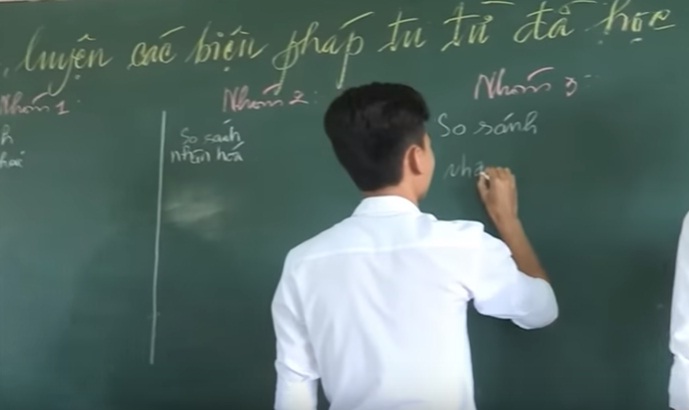 luyện các biện pháp tu từ đã học
Nhóm 1:
Nhóm 2:
So sánh
nhân hóa
Nhóm 3:
So sánh